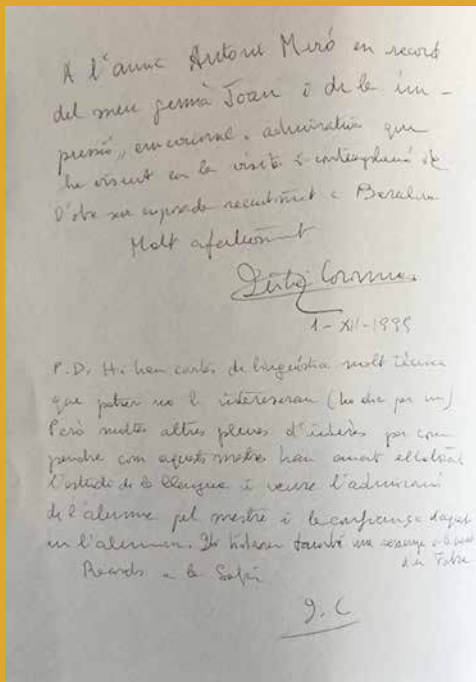 A l'amic Antoni Miró en record
del meu germà Joan i de la im-
pressió, emocional, admirativa que
he viscut en la visita i contemplació de
l'obra exposada recentment a Barcelona
Molt afectuosament
Coromines
1-XII-1995
P.D. Hi han cartes de lingüística molt tècnica
que potser no li interessaran (ho dic per mi)
Però moltes altres plenes d'interès per com
pendre com aquests mestres han amat
l'estudi de la llengua i veure l'admiració
de l'alumne pel mestre i la confiança d'aquest
en l'alumne. també una
d'en Fabra
Records a la Sofia
J. C